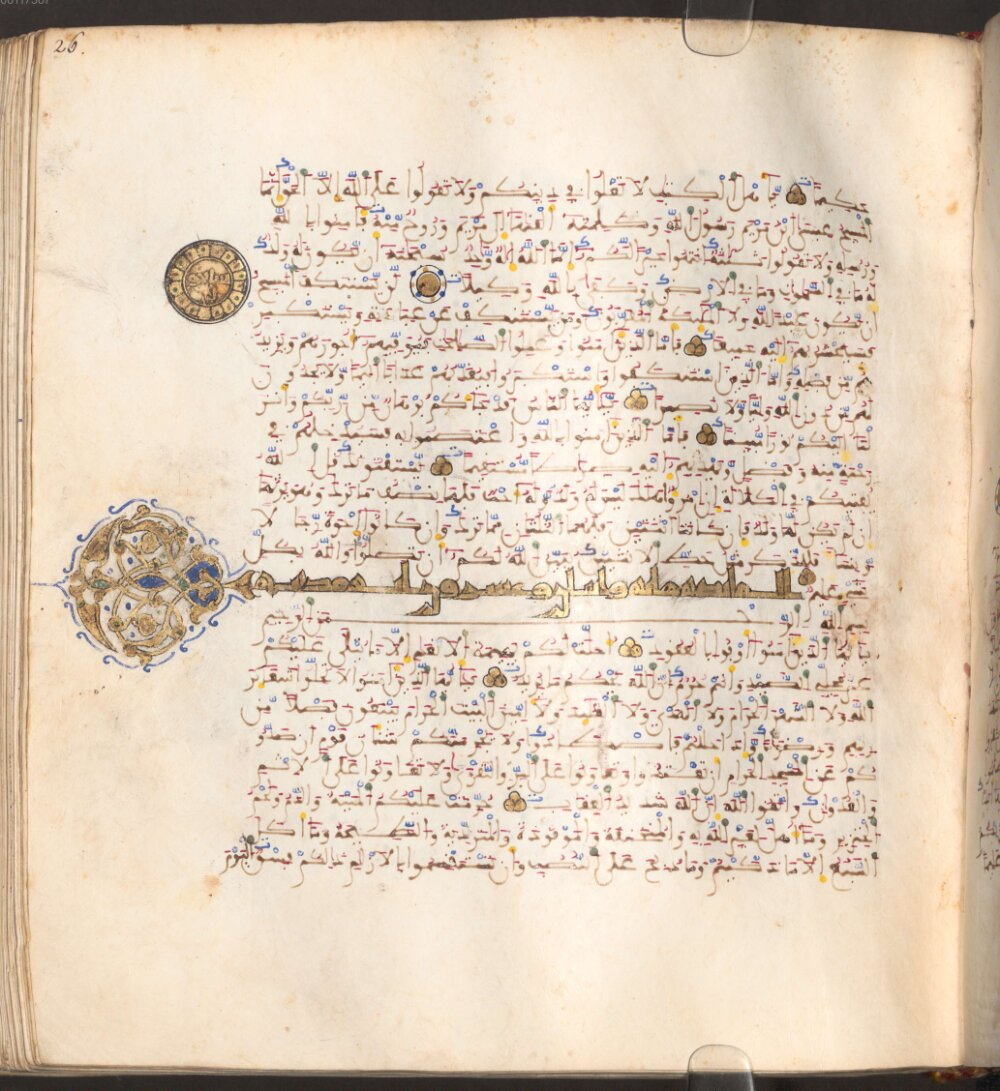 26.
حكيما يأهل الكتب لا تغلوا في دينكم ولا تقولوا على الله إلا الحق إنما
المسيح عيسى ابن مريم رسول الله وكلمته ألقيها إلى مريم وروح منه فامنوا بالله
ورسله ولا تقولوا ثلثة انتهوا خيرا لكم إنما الله إله وحد سبحنه أن يكون له ولد
له ما في السموت وما في الأرض وكفى بالله وكيلا لن يستنكف المسيح
أن يكون عبدا لله ولا الملئكة المقربون ومن يستنكف عن عبادته ويستكبر
فسيحشرهم إليه جميعا فأما الذين ءامنوا وعملوا الصلحت فيوفيهم أجورهم ويزيد
هم من فضله وأما الذين استنكفوا واستكبروا فيعذبهم عذابا أليما ولا يجدون
لهم من دون الله وليا ولا نصيرا يأيها الناس قد جاءكم برهن من ربكم وأنز
لنا إليكم نورا مبينا فأما الذين ءامنوا بالله واعتصموا به فسيدخلهم في
رحمة منه وفضل ويهديهم إليه صرطا مستقيما يستفتونك قل الله
يفتيكم في الكللة إن امرؤا هلك ليس له ولد وله أخت فلها نصف ما ترك وهو يرثها
إن لم يكن لها ولد فإن كانتا اثنتين فلهما الثلثن مما ترك وإن كانوا إخوة رجالا
ونساء فللذكر مثل حظ الأنثيين يبين الله لكم أن تضلوا والله بكل
شيء عليم المائدة
بسم الله الرحمن الرحيم
يأيها الذين ءامنوا أوفوا بالعقود أحلت لكم بهيمة الأنعم إلا ما يتلى عليكم
غير محلي الصيد وأنتم حرم إن الله يحكم ما يريد يأيها الذين ءامنوا لا تحلوا شعئر
الله ولا الشهر الحرام ولا الهدي ولا القلئد ولا ءامين البيت الحرام يبتغون فضلا من
ربهم ورضونا وإذا حللتم فاصطادوا ولا يجرمنكم شنئان قوم أن صدو
كم عن المسجد الحرام أن تعتدوا وتعاونوا على البر والتقوى ولا تعاونوا على الإثم
والعدون واتقوا الله إن الله شديد العقاب حرمت عليكم الميتة والدم ولحم
الخنزير وما أهل لغير الله به والمنخنقة والموقوذة والمتردية والنطيحة وما أكل
السبع إلا ما ذكيتم وما ذبح على النصب وأن تستقسموا بالأزلم ذلكم فسق اليوم